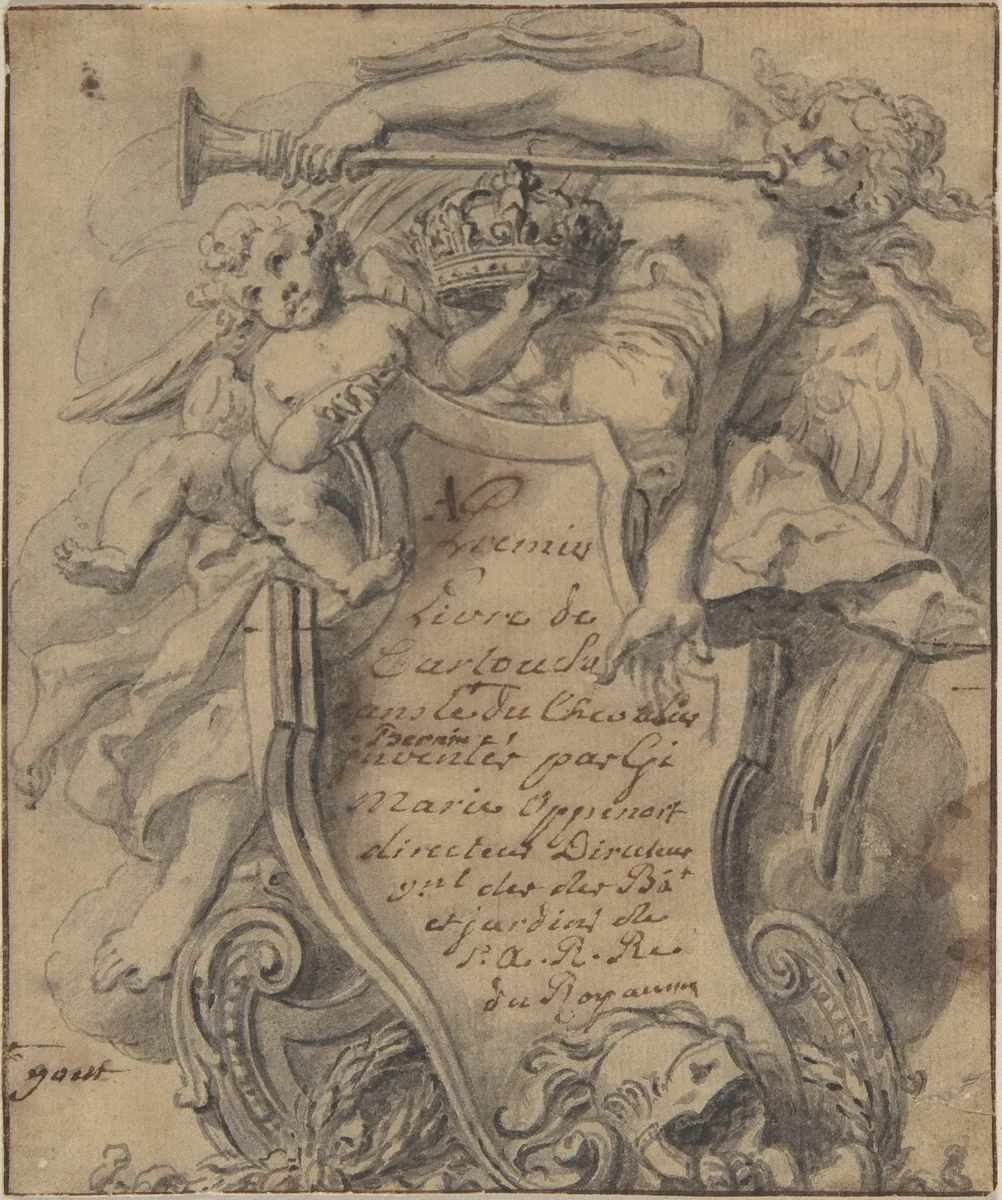 Premier
Livre de
Cartouche
dans le du Chevalier
Bernin
inventés par Gi
Marie Oppenort
directeur Directeur
gnl des des Bât
et jardins de
S. A. R. Re
du Royaume
gout